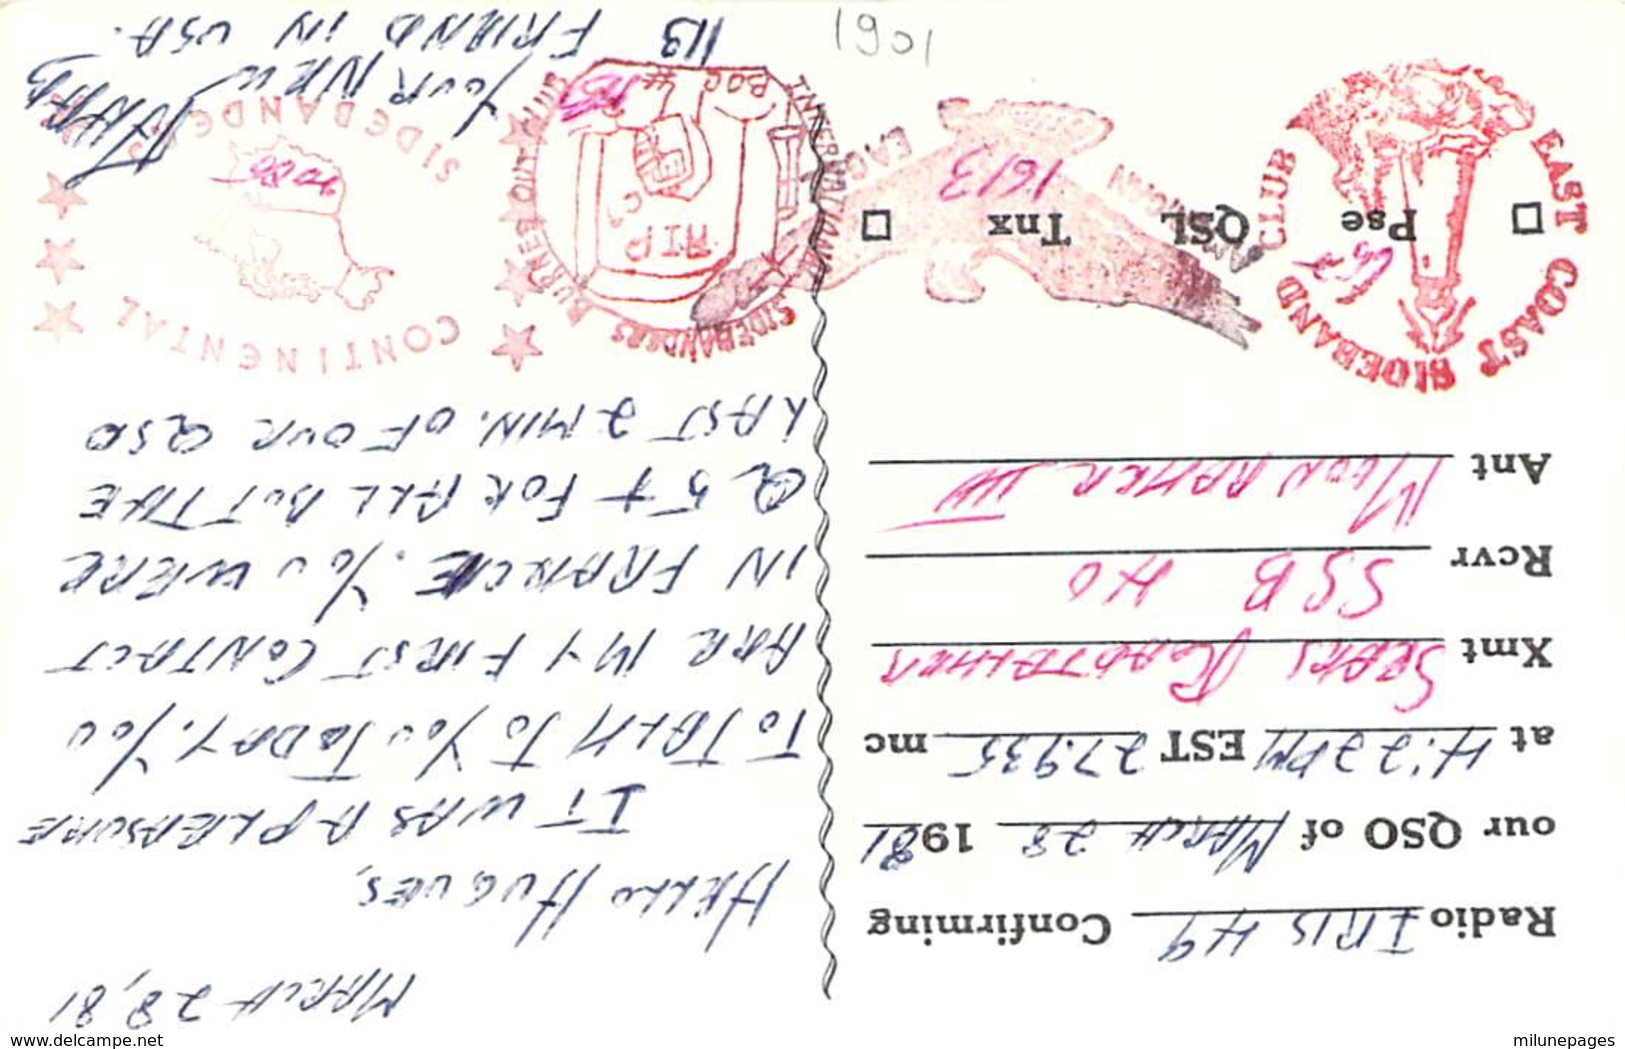 1901
Radio IRIS 49 Confirming
our QSO of MARCH 28 1981
at 4:22 PM EST 27.935 mc
Xmt SEARS ROADTALKER
Rcvr SSB 40
Ant MOONRAKER IV
Pse QSL Tnx
EAST COAST SIDEBAND CLUB
AMERICAN EAGLE
1613
MARCH 28, 81
HELLO HUGUES,
IT WAS A PLEASURE
TO TALK TO YOU TODAY. YOU
ARE MY FIRST CONTACT
IN FRANCE. YOU WERE
Q 5+ FOR ALL BUT THE
LAST 2 MIN. OF OUR QSO
YOUR NEW
FRIEND IN USA.
73
CONTINENTAL
SIDEBANDERS
INTERNATIONAL SIDEBANDERS
RIP
BOC #
www.delcampe.net
milunepages